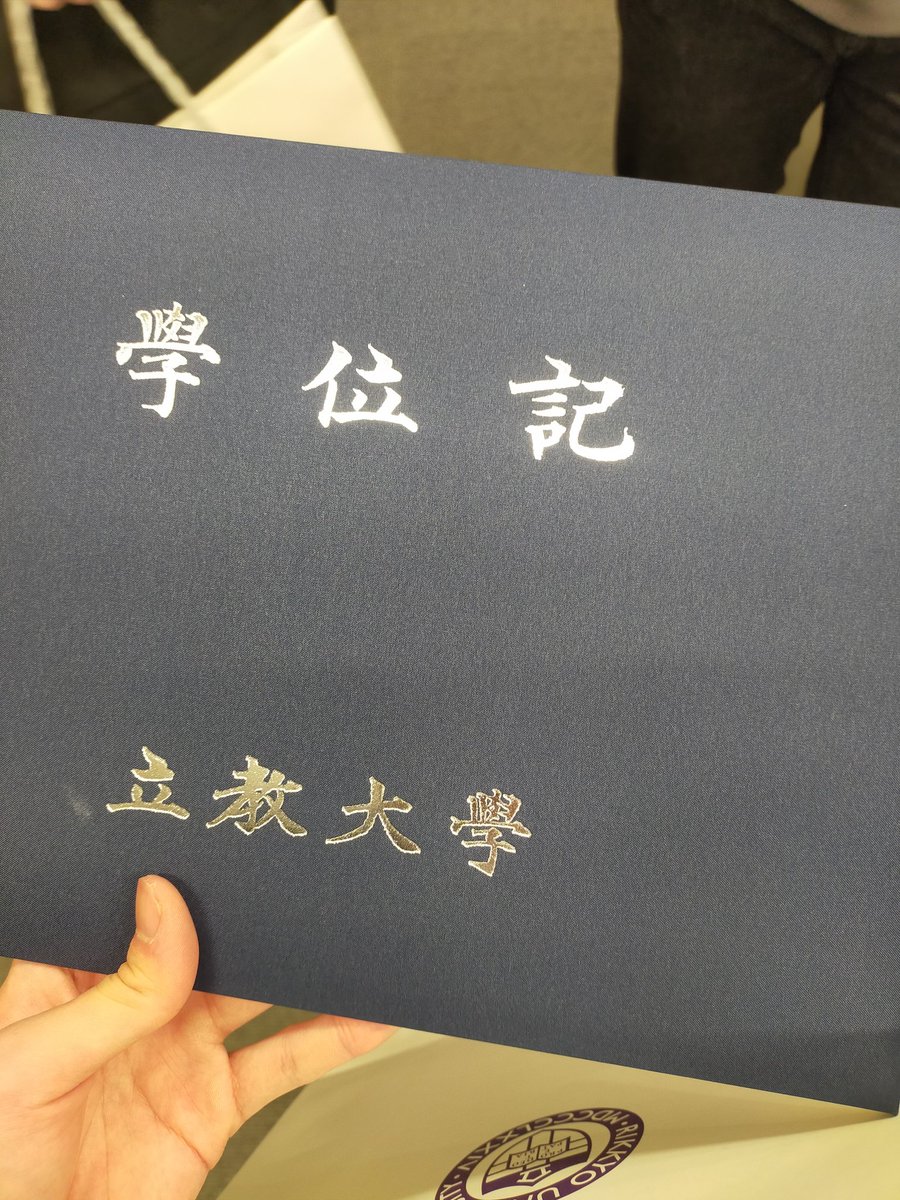 學位記
立教大學
MDCCCLXXIV・RIKKYO